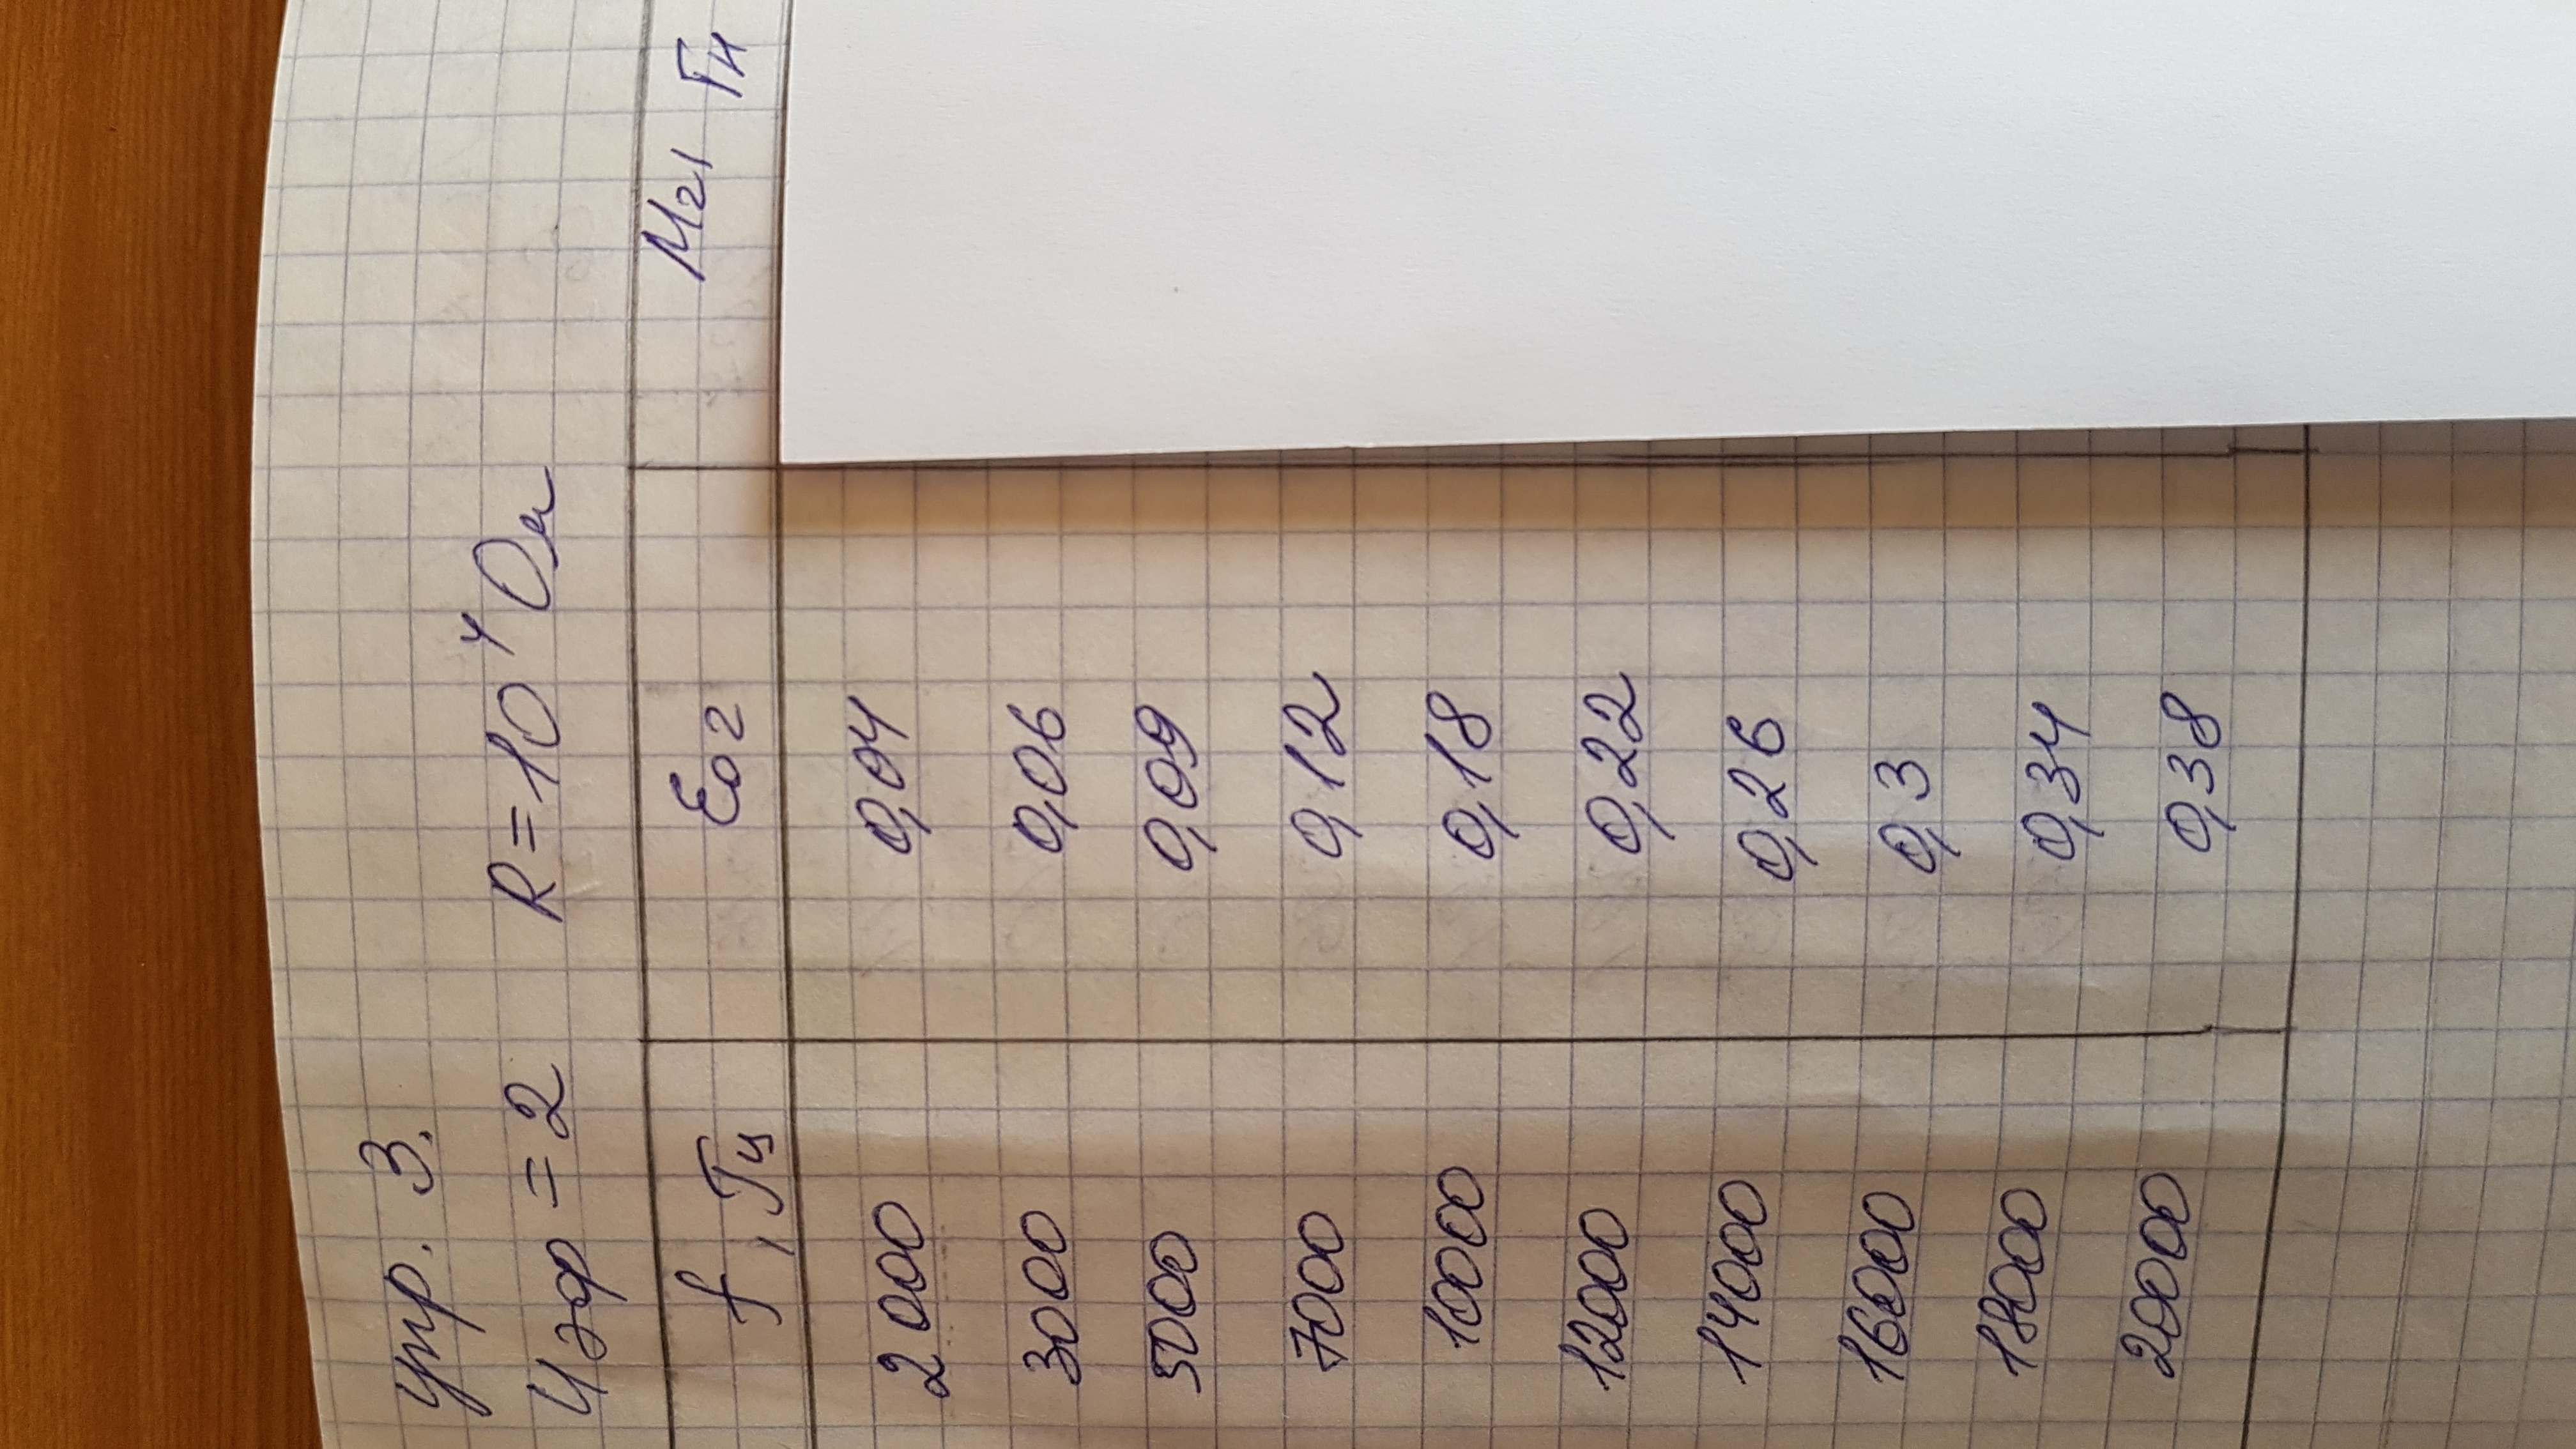 упр. 3.
Uэф = 2 R = 10⁴ Ом
f, Гц Ɛ02 M21 Гн
2000 0,04
3000 0,06
5000 0,09
7000 0,12
10000 0,18
12000 0,22
14000 0,26
16000 0,3
18000 0,34
20000 0,38